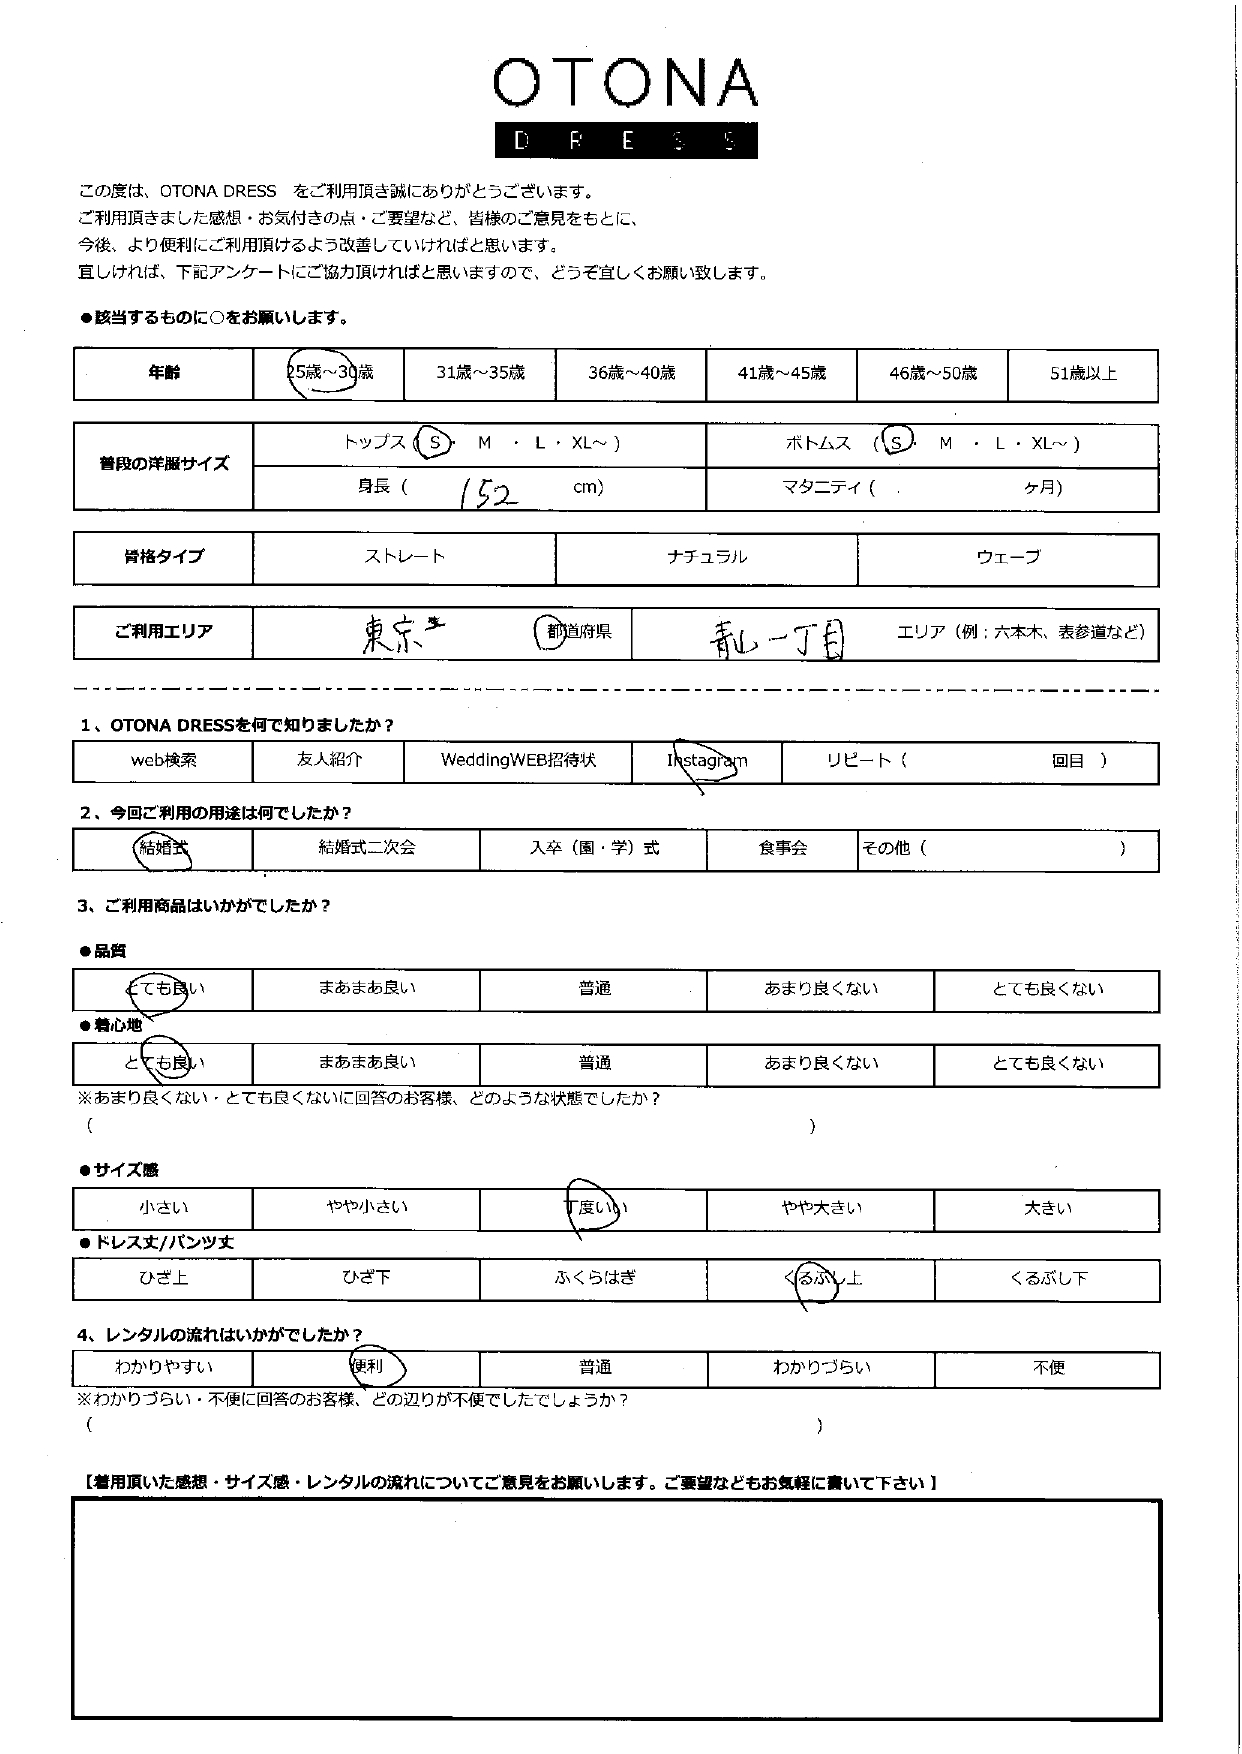 OTONA
DRESS
この度は、OTONA DRESS をご利用頂き誠にありがとうございます。
ご利用頂きました感想・お気付きの点・ご要望など、皆様のご意見をもとに、
今後、より便利にご利用頂けるよう改善していければと思います。
宜しければ、下記アンケートにご協力頂ければと思いますので、どうぞ宜しくお願い致します。
●該当するものに○をお願いします。
年齢 25歳～30歳 31歳～35歳 36歳～40歳 41歳～45歳 46歳～50歳 51歳以上
普段の洋服サイズ
トップス（ S ・ M ・ L ・ XL～ ） ボトムス （ S ・ M ・ L ・ XL～ ）
身長（ 152 cm） マタニティ（ ヶ月）
骨格タイプ ストレート ナチュラル ウェーブ
ご利用エリア 東京 都道府県 青山一丁目 エリア（例：六本木、表参道など）
1、OTONA DRESSを何で知りましたか？
web検索 友人紹介 WeddingWEB招待状 Instagram リピート（ 回目 ）
2、今回ご利用の用途は何でしたか？
結婚式 結婚式二次会 入卒（園・学）式 食事会 その他（ ）
3、ご利用商品はいかがでしたか？
●品質
とても良い まあまあ良い 普通 あまり良くない とても良くない
●着心地
とても良い まあまあ良い 普通 あまり良くない とても良くない
※あまり良くない・とても良くないに回答のお客様、どのような状態でしたか？
（ ）
●サイズ感
小さい やや小さい 丁度いい やや大きい 大きい
●ドレス丈/パンツ丈
ひざ上 ひざ下 ふくらはぎ くるぶし上 くるぶし下
4、レンタルの流れはいかがでしたか？
わかりやすい 便利 普通 わかりづらい 不便
※わかりづらい・不便に回答のお客様、どの辺りが不便でしたでしょうか？
（ ）
【着用頂いた感想・サイズ感・レンタルの流れについてご意見をお願いします。ご要望などもお気軽に書いて下さい】